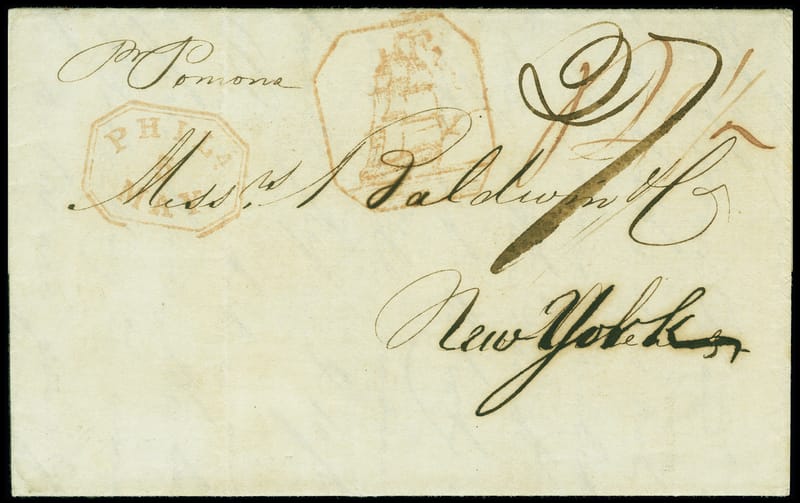 Pr Pomona
PHILA
MAY
Messrs Baldwin & Co
New York